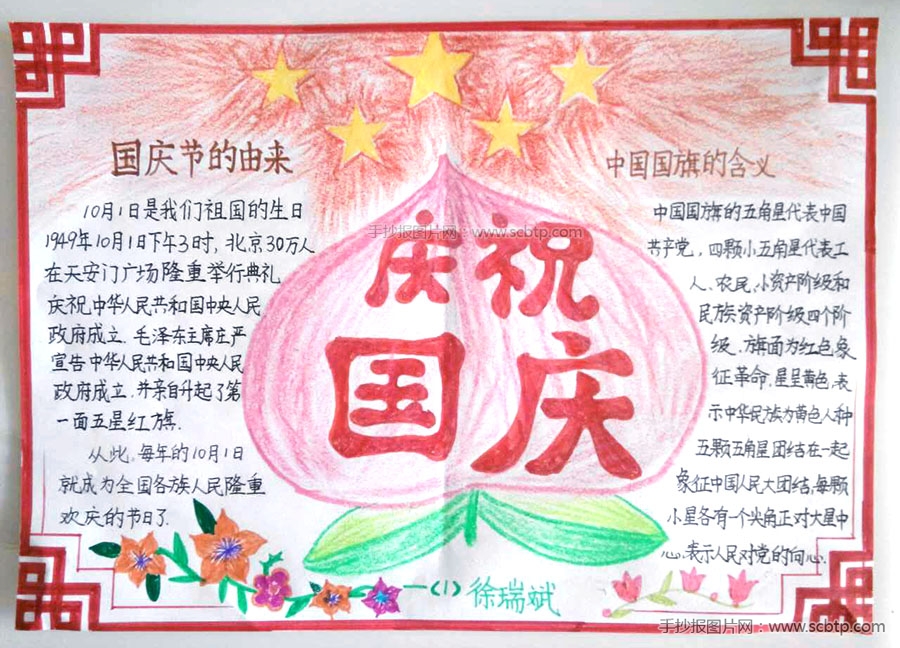 国庆节的由来
10月1日是我们祖国的生日
1949年10月1日下午3时，北京30万人
在天安门广场隆重举行典礼
庆祝中华人民共和国中央人民
政府成立.毛泽东主席庄严
宣告中华人民共和国中央人民
政府成立.并亲自升起了第
一面五星红旗.
从此,每年的10月1日
就成为全国各族人民隆重
欢庆的节日了.
手抄报图片网：www.scbtp.com
庆祝
国庆
一(1)徐瑞斌
中国国旗的含义
中国国旗的五角星代表中国
共产党，四颗小五角星代表工
人、农民、小资产阶级和
民族资产阶级四个阶
级.旗面为红色象
征革命,星呈黄色,表
示中华民族为黄色人种
五颗五角星团结在一起
象征中国人民大团结,每颗
小星各有一个尖角正对大星中
心,表示人民对党的向心.
手抄报图片网：www.scbtp.com